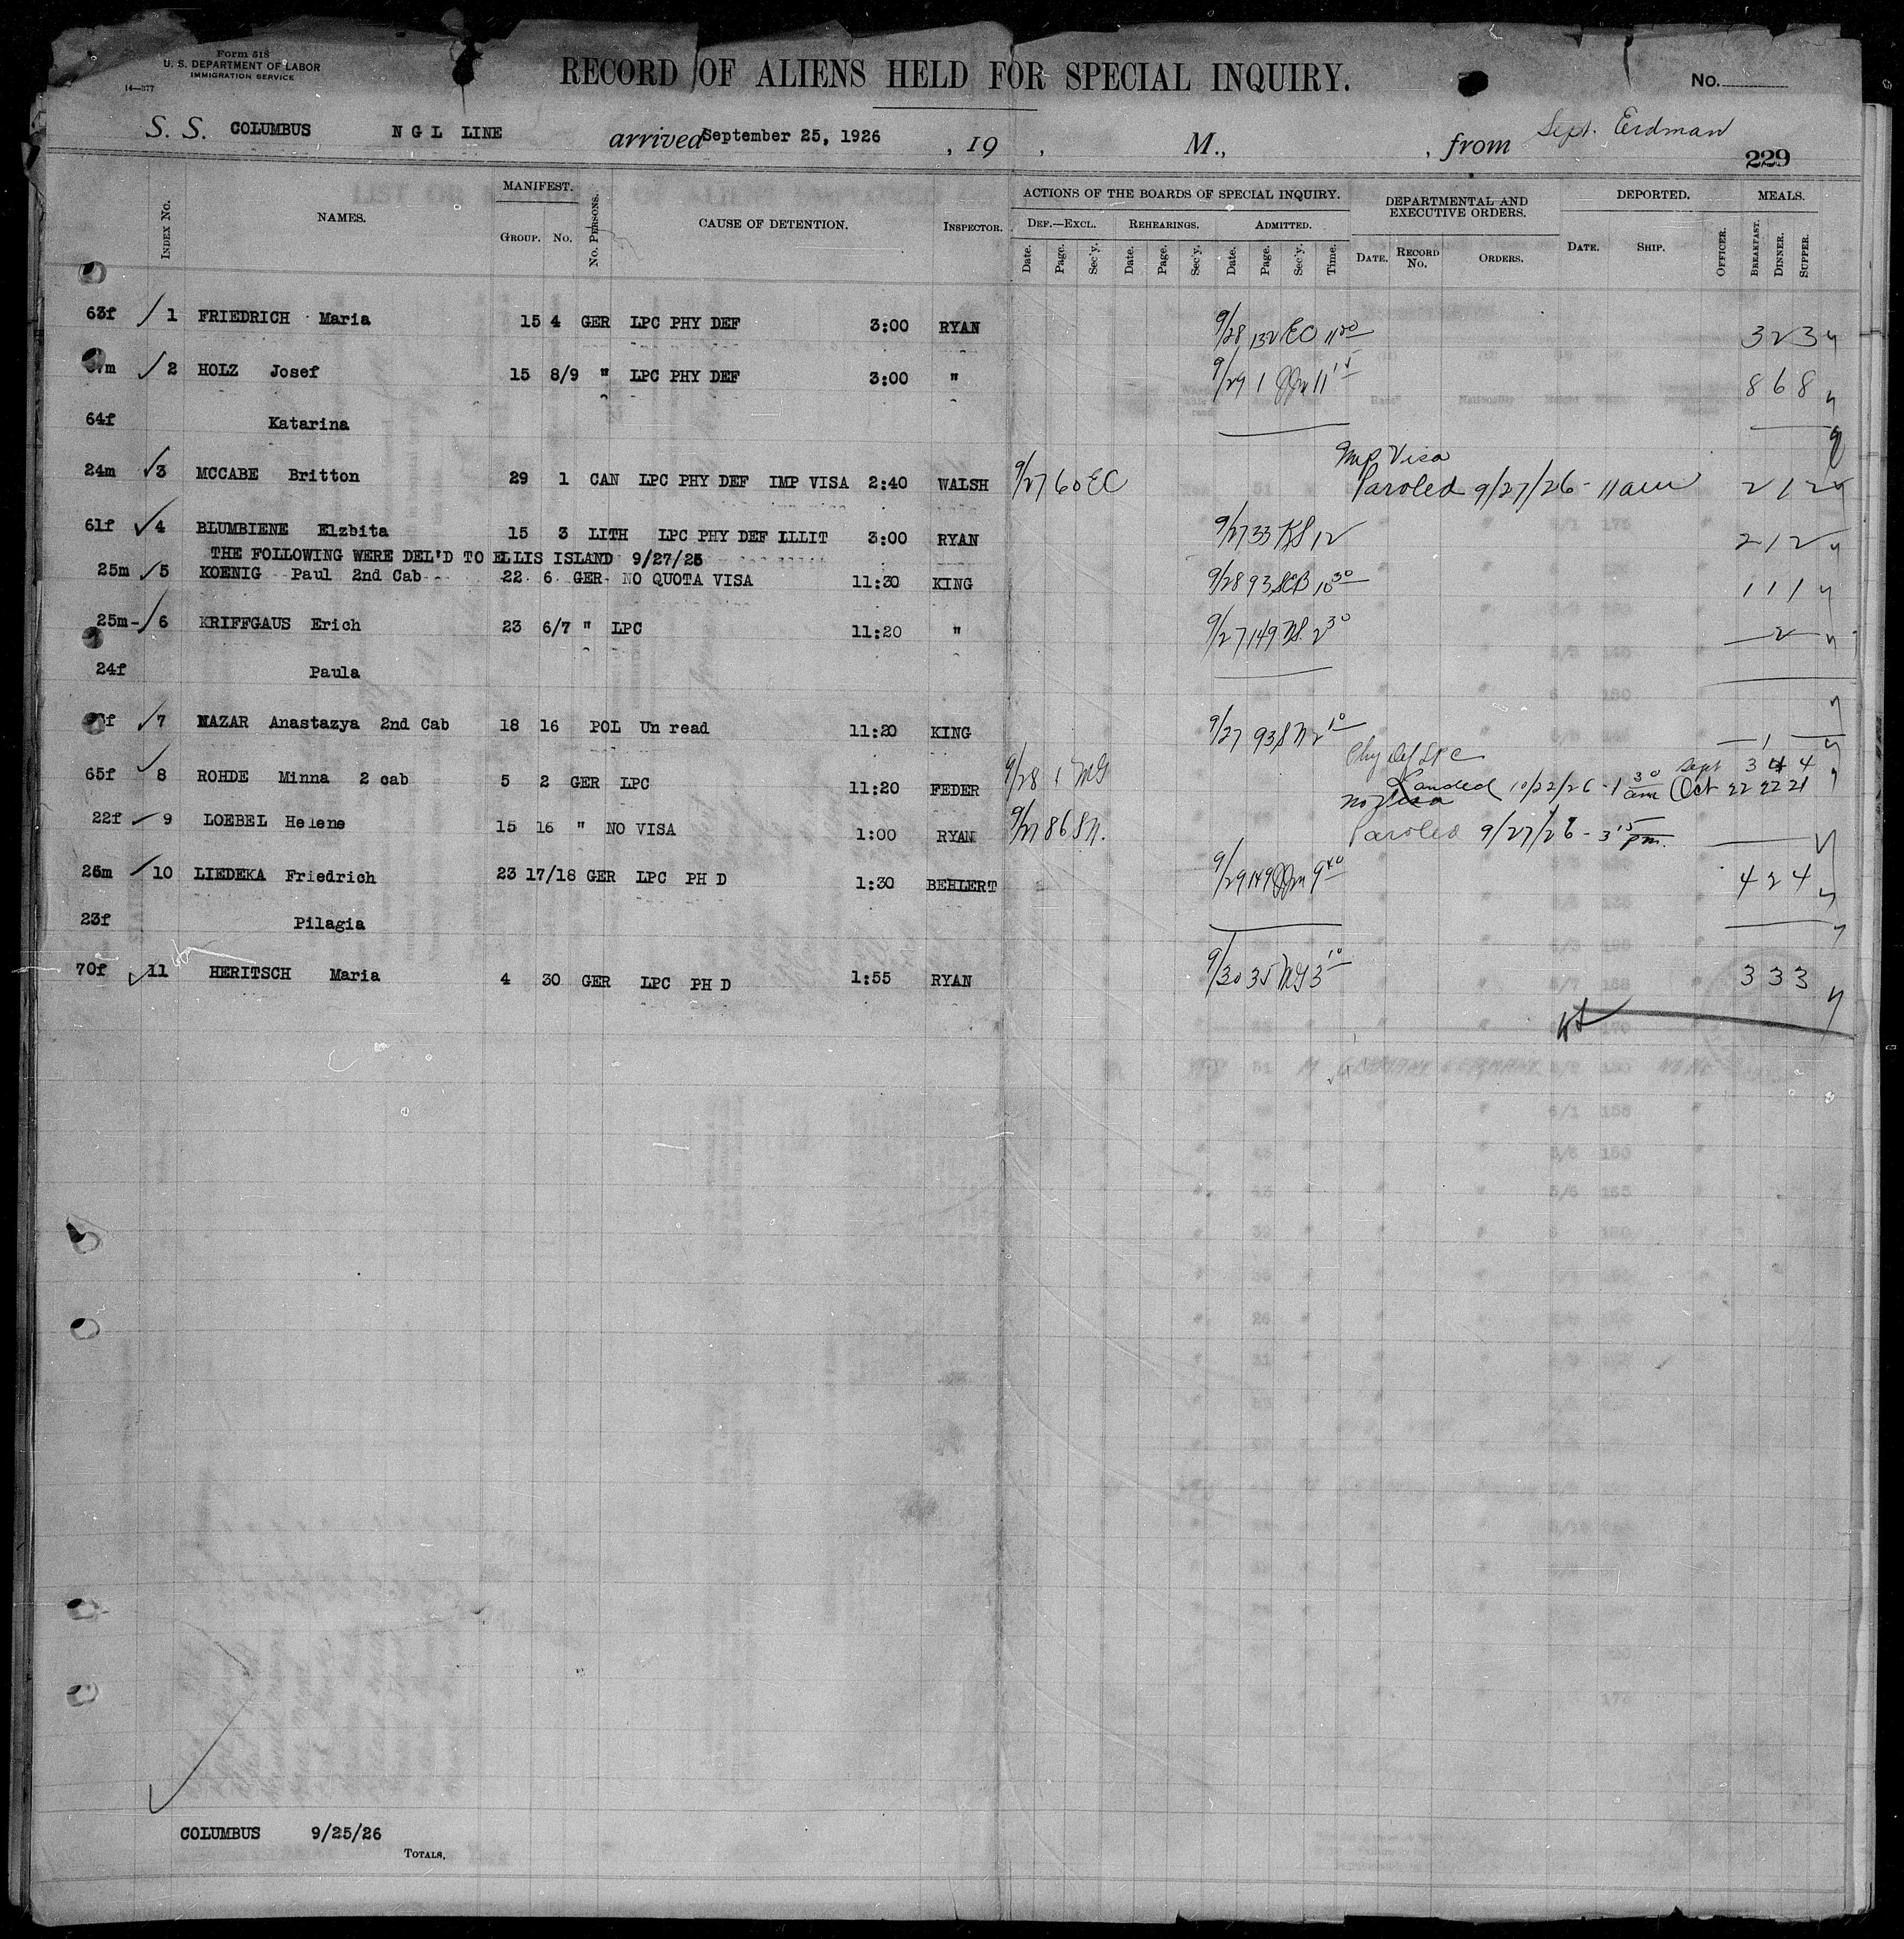 Form 518
U. S. DEPARTMENT OF LABOR
IMMIGRATION SERVICE
14—377
RECORD OF ALIENS HELD FOR SPECIAL INQUIRY.
No.
S. S. COLUMBUS N G L LINE arrived September 25, 1926 , 19 , M., , from Sept. Erdman
229
Index No. NAMES. MANIFEST. GROUP. No. No. PERSONS. CAUSE OF DETENTION. INSPECTOR.
ACTIONS OF THE BOARDS OF SPECIAL INQUIRY. DEPARTMENTAL AND EXECUTIVE ORDERS. DEPORTED. MEALS.
DEF.—EXCL. REHEARINGS. ADMITTED.
Date. Page. Sec'y. Date. Page. Sec'y. Date. Page. Sec'y. Time. DATE. RECORD No. ORDERS. DATE. SHIP. OFFICER. BREAKFAST. DINNER. SUPPER.
63f 1 FRIEDRICH Maria 15 4 GER LPC PHY DEF 3:00 RYAN 9/28 132 EC 11 20 3 2 3
m 2 HOLZ Josef 15 8/9 " LPC PHY DEF 3:00 " 9/29 1 11 15 8 6 8
64f Katarina
Imp Visa
24m 3 MCCABE Britton 29 1 CAN LPC PHY DEF IMP VISA 2:40 WALSH 9/27 60 EC Paroled 9/27/26 - 11 am 2 1 2
61f 4 BLUMBIENE Elzbita 15 3 LITH LPC PHY DEF ILLIT 3:00 RYAN 9/27 33 KS 12 2 1 2
THE FOLLOWING WERE DEL'D TO ELLIS ISLAND 9/27/26
25m 5 KOENIG Paul 2nd Cab 22 6 GER NO QUOTA VISA 11:30 KING 9/28 93 SCB 10 30 1 1 1
25m 6 KRIFFGAUS Erich 23 6/7 " LPC 11:20 " 9/27 149 NS. 2 30 2
24f Paula
f 7 NAZAR Anastazya 2nd Cab 18 16 POL Un read 11:20 KING 9/27 93 SN 2 10 1
Phy Def LPC Sept 3 4 4
65f 8 ROHDE Minna 2 cab 5 2 GER LPC 11:20 FEDER 9/28 1 MG Landed 10/22/26 - 1 30 am Oct 22 22 21
No Visa
22f 9 LOEBEL Helene 15 16 " NO VISA 1:00 RYAN 9/27 86 SN. Paroled 9/27/26 - 3 15 pm.
26m 10 LIEDEKA Friedrich 23 17/18 GER LPC PH D 1:30 BEHLERT 9/29 149 9 40 4 2 4
23f Pilagia
70f 11 HERITSCH Maria 4 30 GER LPC PH D 1:55 RYAN 9/30 35 MG 3 10 3 3 3
COLUMBUS 9/25/26
TOTALS,